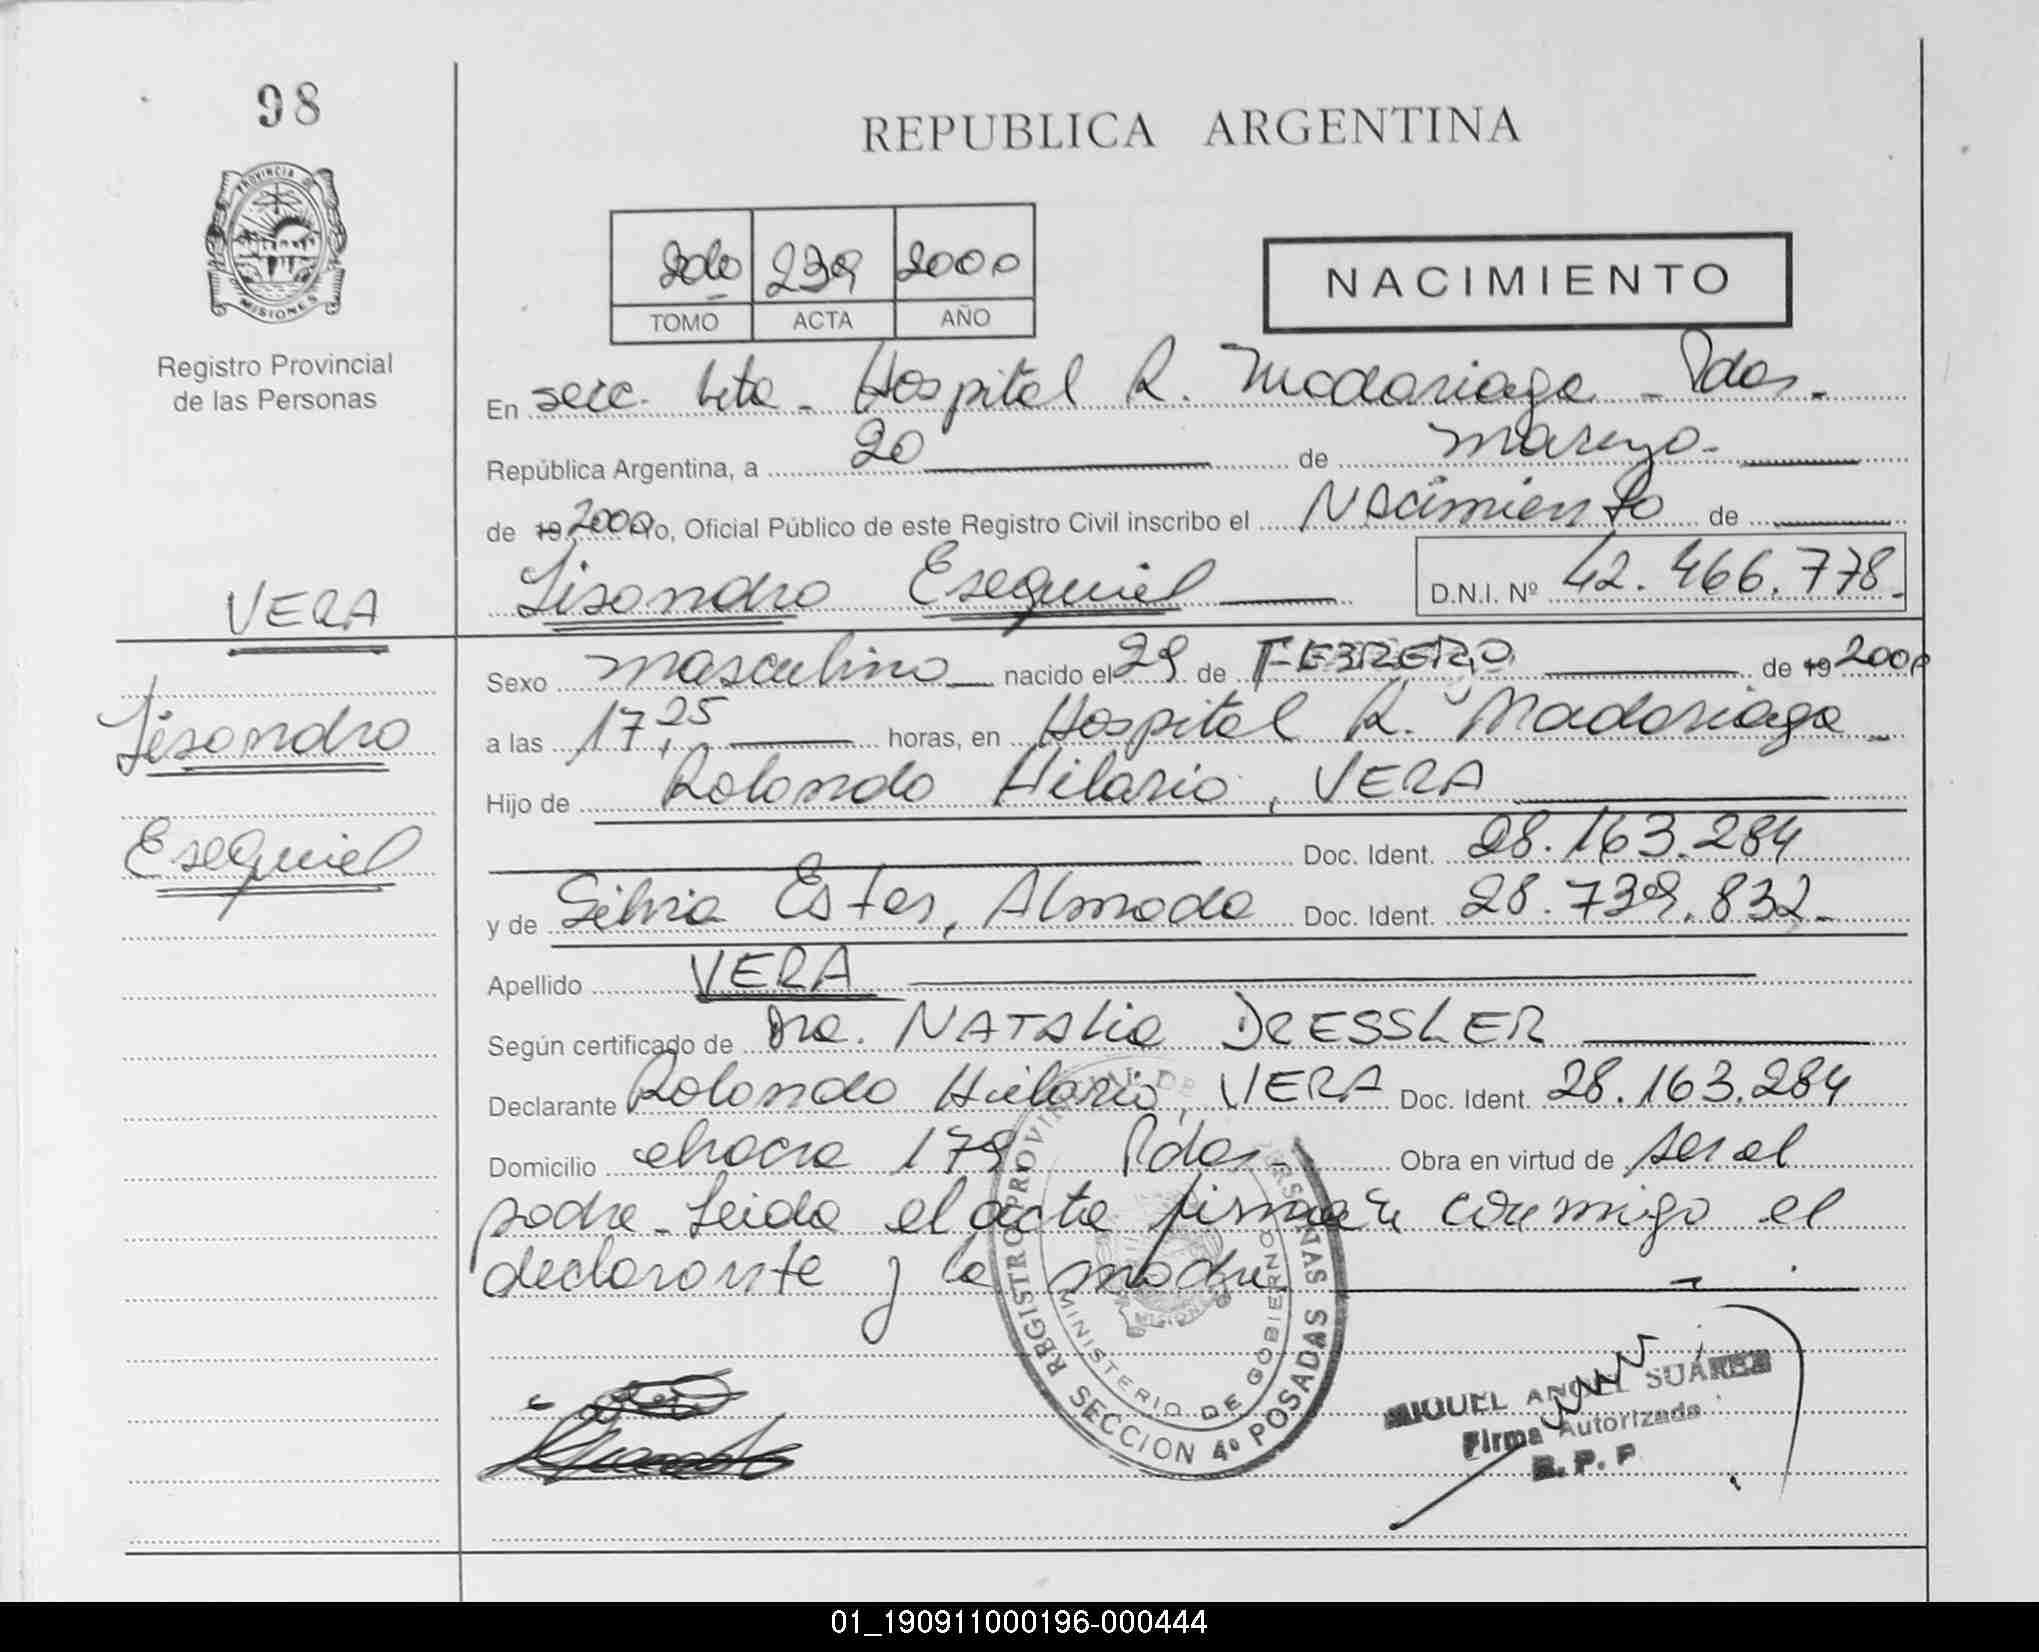 98
REPUBLICA ARGENTINA
PROVINCIA DE
MISIONES
Registro Provincial
de las Personas
2do 239 2000
TOMO ACTA AÑO
NACIMIENTO
En secc. 4ta - Hospital R. Madariaga - Pdas.
República Argentina, a 20 de marzo
de 19 2000 Yo, Oficial Público de este Registro Civil inscribo el Nacimiento de
VERA
Lisandro Esequiel D.N.I. Nº 42.466.778
Sexo masculino nacido el 29 de FEBRERO de 19 2000
Lisandro
a las 17,25 horas, en Hospital R. Madariaga
Hijo de Rolando Hilario, VERA
Esequiel
Doc. Ident. 28.163.284
y de Silvia Ester, Almada Doc. Ident. 28.739.832
Apellido VERA
Según certificado de Dra. NATALia DRESSLER
Declarante Rolando Hilario, VERA Doc. Ident. 28.163.284
Domicilio chacra 179 Pdas. Obra en virtud de ser el
padre - Leida el acta firman conmigo el
declarante y la madre
REGISTRO PROVINCIAL DE LAS PERSONAS
MINISTERIO DE GOBIERNO
SECCION 4º POSADAS
MIGUEL ANGEL SUÁREZ
Firma Autorizada
R. P. P.
01_190911000196-000444